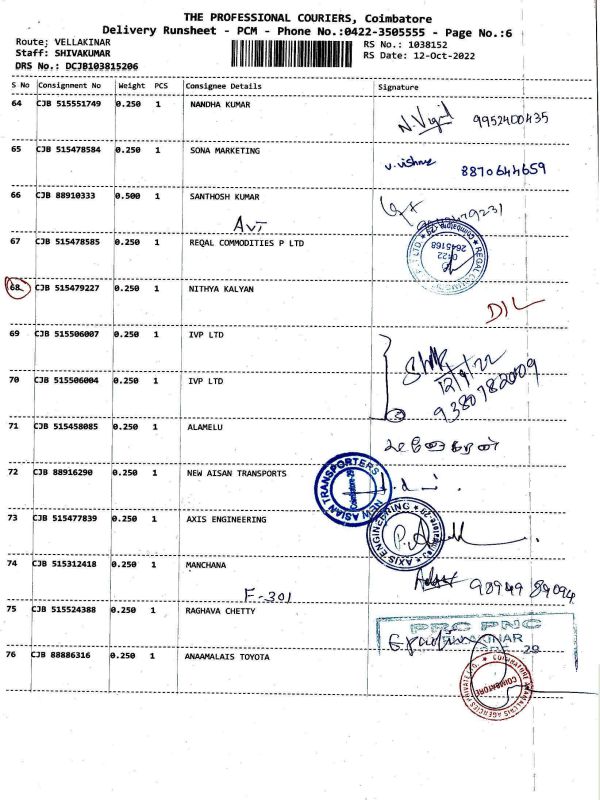 THE PROFESSIONAL COURIERS, Coimbatore
Delivery Runsheet - PCM - Phone No.:0422-3505555 - Page No.:6
Route; VELLAKINAR
Staff: SHIVAKUMAR
DRS No.: DCJB103815206
RS No.: 1038152
RS Date: 12-Oct-2022
S No Consignment No Weight PCS Consignee Details Signature
64 CJB 515551749 0.250 1 NANDHA KUMAR
9952400435
65 CJB 515478584 0.250 1 SONA MARKETING
8870644659
66 CJB 88910333 0.500 1 SANTHOSH KUMAR
AVT
67 CJB 515478585 0.250 1 REQAL COMMODITIES P LTD
0422
2645168
68 CJB 515479227 0.250 1 NITHYA KALYAN
DIL
69 CJB 515506007 0.250 1 IVP LTD
70 CJB 515506004 0.250 1 IVP LTD
9380782009
71 CJB 515458085 0.250 1 ALAMELU
72 CJB 88916290 0.250 1 NEW AISAN TRANSPORTS
NEW ASIAN TRANSPORTERS
73 CJB 515477839 0.250 1 AXIS ENGINEERING
AXIS ENGINEERING
74 CJB 515312418 0.250 1 MANCHANA
90949 89094
F-301
75 CJB 515524388 0.250 1 RAGHAVA CHETTY
PRC PNC
76 CJB 88886316 0.250 1 ANAAMALAIS TOYOTA
COIMBATORE